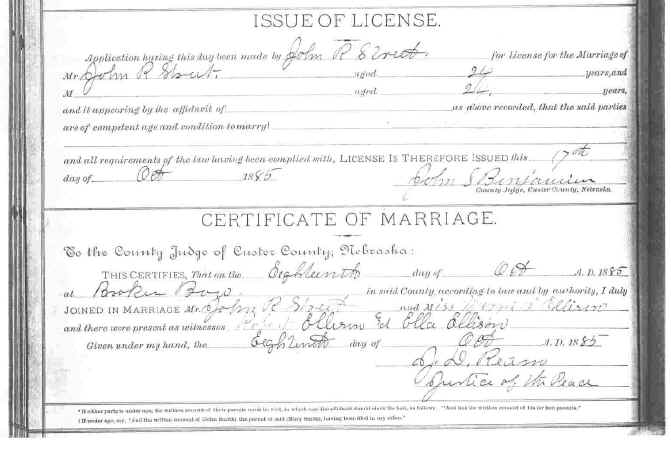 ISSUE OF LICENSE.
Application having this day been made by John R Street. for license for the Marriage of
Mr John R Street. aged 24 years, and
M aged years,
and it appearing by the affidavit of as above recorded, that the said parties
are of competent age and condition to marry!
and all requirements of the law having been complied with, LICENSE IS THEREFORE ISSUED this 17th
day of Oct 1885
John S Benjamin
County Judge, Custer County, Nebraska.
CERTIFICATE OF MARRIAGE.
To the County Judge of Custer County, Nebraska:
THIS CERTIFIES, That on the Eighteenth day of Oct A. D. 1885
at Broken Bow. in said County, according to law and by authority, I duly
JOINED IN MARRIAGE Mr. John R Street and Miss Ellison
and there were present as witnesses Ellison Ed Ella Ellison
Given under my hand, the Eighteenth day of Oct A. D. 1885
J. D. Ream
Justice of the Peace